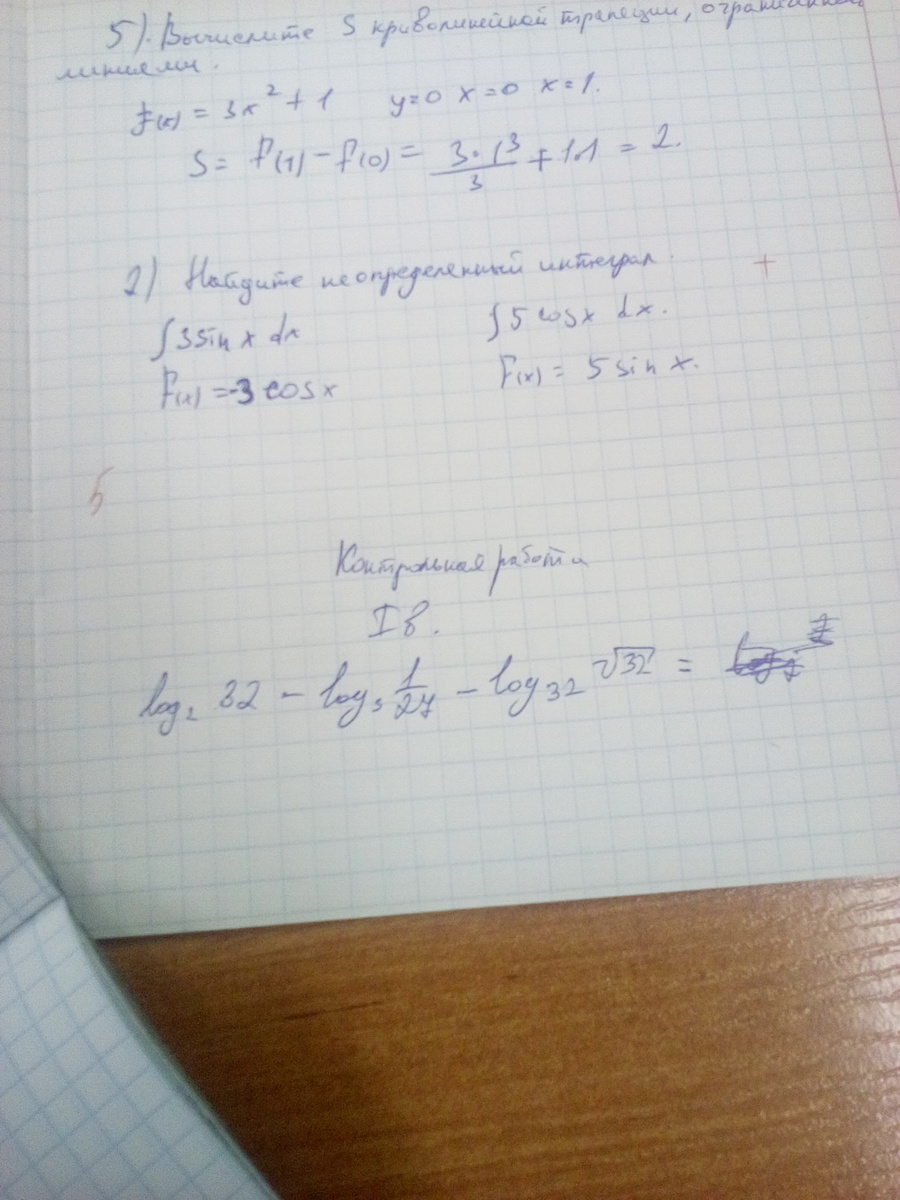 5). Вычислите S криволинейной трапеции, ограниченной
линиями.
f(x) = 3x² + 1 y=0 x=0 x=1.
S = F(1) - F(0) = 3·1³/3 + 1·1 = 2.
2) Найдите неопределенный интеграл.
∫3sin x dx ∫5 cosx dx.
F(x) = -3 cosx F(x) = 5 sin x.
5
Контрольная работа
I в.
log₂ 32 - log₃ 1/27 - log₃₂ √32 =